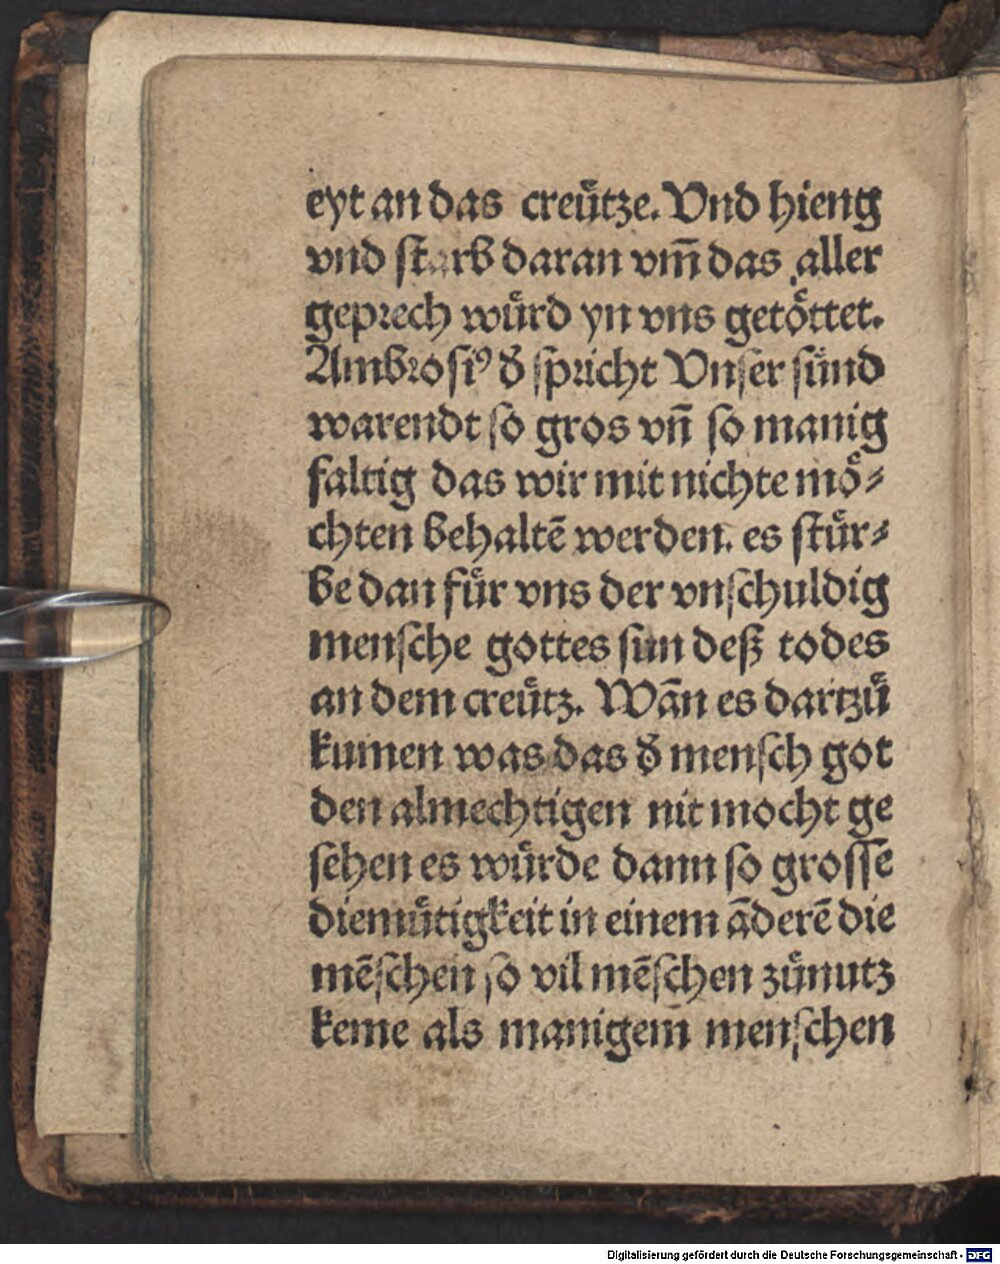 eyt an das creütze. Vnd hieng
vnd starb daran vm̄ das aller
geprech würd yn vns getöttet.
Ambrosiꝰ d̄ spricht Vnser sünd
warendt so gros vn̄ so manig
faltig das wir mit nichte mö⸗
chten behaltē werden. es stür⸗
be dan für vns der vnschuldig
mensche gottes sun deß todes
an dem creütz. Wān es dartzů
kumen was das d̄ mensch got
den almechtigen nit mocht ge
sehen es würde dann so grosse
diemütigkeit in einem āderē die
mēschen so vil mēschen zůnutz
keme als manigem̄ menschen
Digitalisierung gefördert durch die Deutsche Forschungsgemeinschaft - DFG